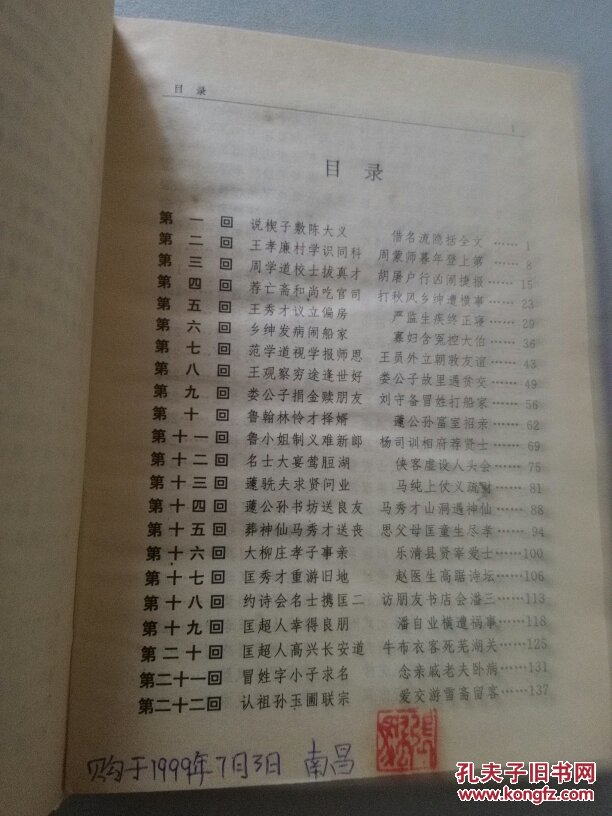 目 录
1
目 录
第 一 回 说楔子敷陈大义 借名流隐括全文 …… 1
第 二 回 王孝廉村学识同科 周蒙师暮年登上第 …… 8
第 三 回 周学道校士拔真才 胡屠户行凶闹捷报 …… 15
第 四 回 荐亡斋和尚吃官司 打秋风乡绅遭横事 …… 23
第 五 回 王秀才议立偏房 严监生疾终正寝 …… 29
第 六 回 乡绅发病闹船家 寡妇含冤控大伯 …… 36
第 七 回 范学道视学报师恩 王员外立朝敦友谊 …… 43
第 八 回 王观察穷途逢世好 娄公子故里遇贫交 …… 49
第 九 回 娄公子捐金赎朋友 刘守备冒姓打船家 …… 56
第 十 回 鲁翰林怜才择婿 蘧公孙富室招亲 …… 62
第 十 一 回 鲁小姐制义难新郎 杨司训相府荐贤士 …… 69
第 十 二 回 名士大宴莺脰湖 侠客虚设人头会 …… 75
第 十 三 回 蘧駪夫求贤问业 马纯上仗义疏财 …… 81
第 十 四 回 蘧公孙书坊送良友 马秀才山洞遇神仙 …… 88
第 十 五 回 葬神仙马秀才送丧 思父母匡童生尽孝 …… 94
第 十 六 回 大柳庄孝子事亲 乐清县贤宰爱士 ……100
第 十 七 回 匡秀才重游旧地 赵医生高踞诗坛 ……106
第 十 八 回 约诗会名士携匡二 访朋友书店会潘三 ……113
第 十 九 回 匡超人幸得良朋 潘自业横遭祸事 ……118
第 二 十 回 匡超人高兴长安道 牛布衣客死芜湖关 ……125
第二十一回 冒姓字小子求名 念亲戚老夫卧病 ……131
第二十二回 认祖孙玉圃联宗 爱交游雪斋留客 ……137
购于1999年7月3日 南昌
孔夫子旧书网
www.kongfz.com